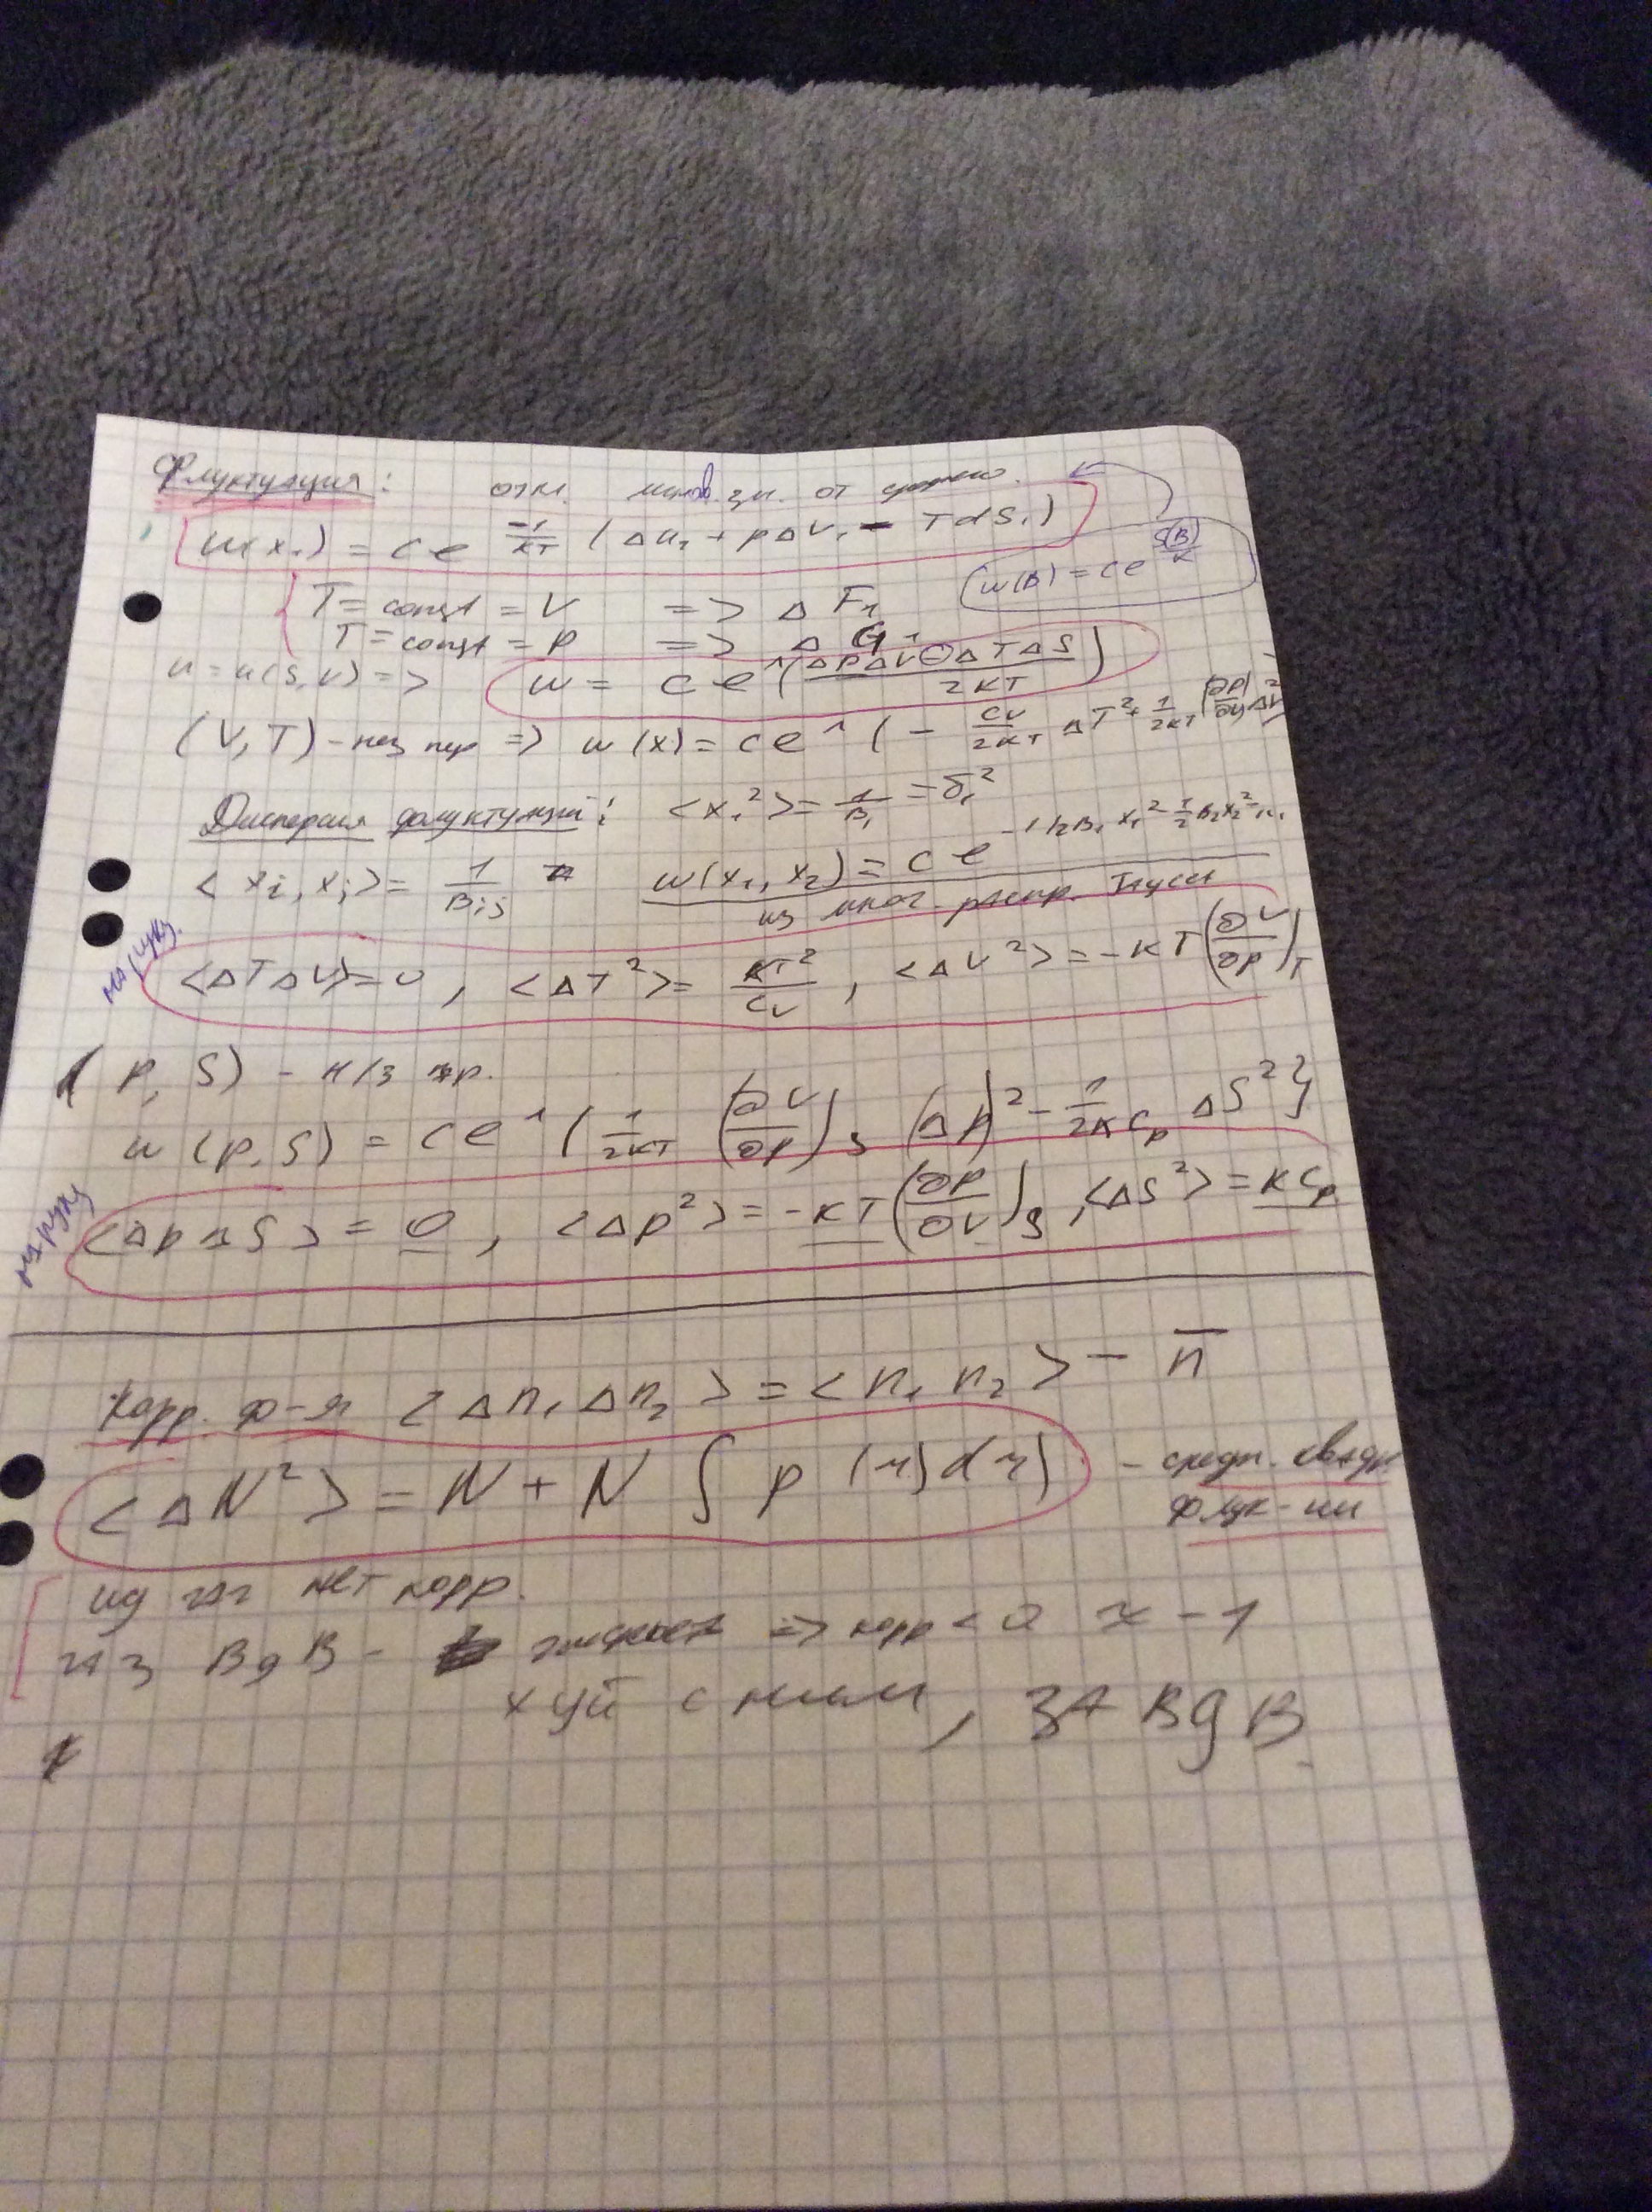 Флуктуация: откл. мгнов. зн. от средн.
w(x₁) = c e^{-1/кТ (Δu₁ + pΔV₁ - TdS₁)}
w(B) = c e^{S(B)/к}
T = const = V => Δ F₁
T = const = p => Δ G₁
u = u(S,V) => w = c e^(ΔpΔV ⊖ ΔTΔS / 2кТ)
(V,T) - нез пер => w(x) = c e^(- Cv/2кТ ΔT² + 1/2кТ (∂p/∂V) ΔV²
Дисперсия флуктуаций: <x₁²> = 1/B₁ = δ₁²
<xᵢ, xⱼ> = 1/Bᵢⱼ w(x₁, x₂) = c e^{-1/2 B₁ x₁² - 1/2 B₂ x₂² - ...}
из мног. распр. Гауса
<ΔTΔV> = 0, <ΔT²> = кТ²/Cv, <ΔV²> = -кТ(∂V/∂p)T
(p, S) - н/з пер.
w(p,S) = c e^(1/2кТ (∂V/∂p)S (Δp)² - 1/2кCp ΔS²}
<ΔpΔS> = 0, <Δp²> = -кТ(∂p/∂V)S, <ΔS²> = кCp
Корр. ф-я <Δn₁Δn₂> = <n₁ n₂> - n̅
<ΔN²> = N + N ∫ p(r)dr) - средн. квадр.
флук-ии
ид газ нет корр.
газ ВдВ - => корр < 0 ~ -1
хуй с ним, за ВдВ